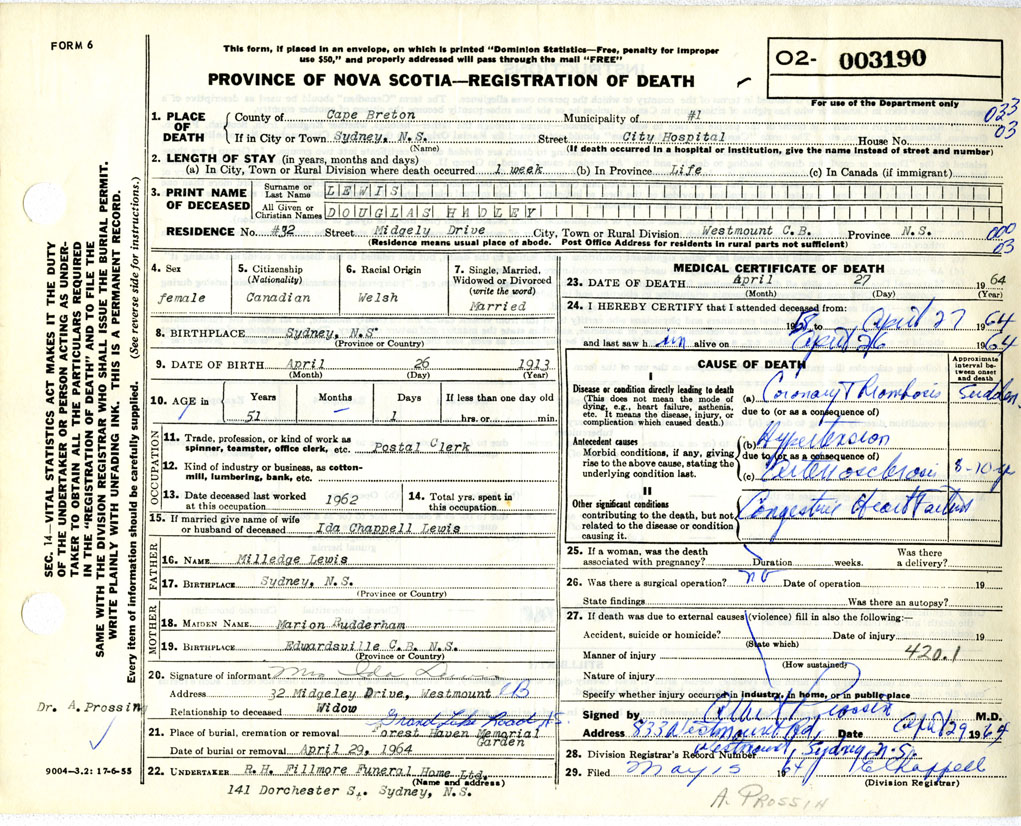 FORM 6
This form, if placed in an envelope, on which is printed "Dominion Statistics—Free, penalty for improper
use $50," and properly addressed will pass through the mail "FREE"
PROVINCE OF NOVA SCOTIA—REGISTRATION OF DEATH
02- 003190
For use of the Department only
033
03
1. PLACE OF DEATH
County of Cape Breton Municipality of #1
If in City or Town Sydney, N.S. Street City Hospital House No.
(Name) (If death occurred in a hospital or institution, give the name instead of street and number)
2. LENGTH OF STAY (in years, months and days)
(a) In City, Town or Rural Division where death occurred 1 week (b) In Province Life (c) In Canada (if immigrant)
3. PRINT NAME OF DECEASED
Surname or Last Name LEWIS
All Given or Christian Names DOUGLAS HADLEY
RESIDENCE No. #32 Street Midgely Drive City, Town or Rural Division Westmount C.B. Province N.S.
(Residence means usual place of abode. Post Office Address for residents in rural parts not sufficient)
000
03
4. Sex
female
5. Citizenship
(Nationality)
Canadian
6. Racial Origin
Welsh
7. Single, Married,
Widowed or Divorced
(write the word)
Married
8. BIRTHPLACE Sydney, N.S.
(Province or Country)
9. DATE OF BIRTH April 26 1913
(Month) (Day) (Year)
10. AGE in
Years Months Days If less than one day
51 — 1 hrs. or min.
OCCUPATION
11. Trade, profession, or kind of work as
spinner, teamster, office clerk, etc. Postal Clerk
12. Kind of industry or business, as cotton-
mill, lumbering, bank, etc.
13. Date deceased last worked
at this occupation 1962
14. Total yrs. spent in
this occupation
15. If married give name of wife
or husband of deceased Ida Chappell Lewis
FATHER
16. NAME Milledge Lewis
17. BIRTHPLACE Sydney, N.S.
(Province or Country)
MOTHER
18. MAIDEN NAME Marion Rudderham
19. BIRTHPLACE Edwardsville C.B. N.S.
(Province or Country)
20. Signature of informant Mrs Ida Lewis
Address 32 Midgeley Drive, Westmount CB
Relationship to deceased Widow
Grand Lake Road NS.
21. Place of burial, cremation or removal Forest Haven Memorial
Garden
Date of burial or removal April 29, 1964
22. UNDERTAKER R.H. Fillmore Funeral Home Ltd.
(Name and address)
141 Dorchester S. Sydney, N.S.
MEDICAL CERTIFICATE OF DEATH
23. DATE OF DEATH April 27 1964
(Month) (Day) (Year)
24. I HEREBY CERTIFY that I attended deceased from:
19 to April 27 1964
and last saw h im alive on April 26 1964
CAUSE OF DEATH
Approximate
interval be-
tween onset
and death
I
Disease or condition directly leading to death
(This does not mean the mode of
dying, e.g., heart failure, asthenia,
etc. It means the disease, injury, or
complication which caused death.)
(a) Coronary Thrombosis Sudden
due to (or as a consequence of)
Antecedent causes
Morbid conditions, if any, giving
rise to the above cause, stating the
underlying condition last.
(b) Hypertension
due to (or as a consequence of)
(c) Arteriosclerosis 8-10 yr
II
Other significant conditions
contributing to the death, but not
related to the disease or condition
causing it.
Congestive Heart Failure
25. If a woman, was the death
associated with pregnancy? Duration weeks. Was there
a delivery?
26. Was there a surgical operation? no Date of operation 19
State findings Was there an autopsy?
27. If death was due to external causes (violence) fill in also the following:—
Accident, suicide or homicide? Date of injury 19
(State which)
Manner of injury 420.1
(How sustained)
Nature of injury
Specify whether injury occurred in industry, in home, or in public place
Signed by Albert Prossin M.D.
Address 833 Westmount Rd, Date April 29 1964
Westmount, Sydney N.S.
28. Division Registrar's Record Number
29. Filed May 15 1964 E Chappell
(Division Registrar)
A. PROSSIN
SEC. 14—VITAL STATISTICS ACT MAKES IT THE DUTY
OF THE UNDERTAKER OR PERSON ACTING AS UNDER-
TAKER TO OBTAIN ALL THE PARTICULARS REQUIRED
IN THE "REGISTRATION OF DEATH" AND TO FILE THE
SAME WITH THE DIVISION REGISTRAR WHO SHALL ISSUE THE BURIAL PERMIT.
WRITE PLAINLY WITH UNFADING INK. THIS IS A PERMANENT RECORD.
Every item of information should be carefully supplied. (See reverse side for instructions.)
Dr. A. Prossing
9004—3.2: 17-6-55